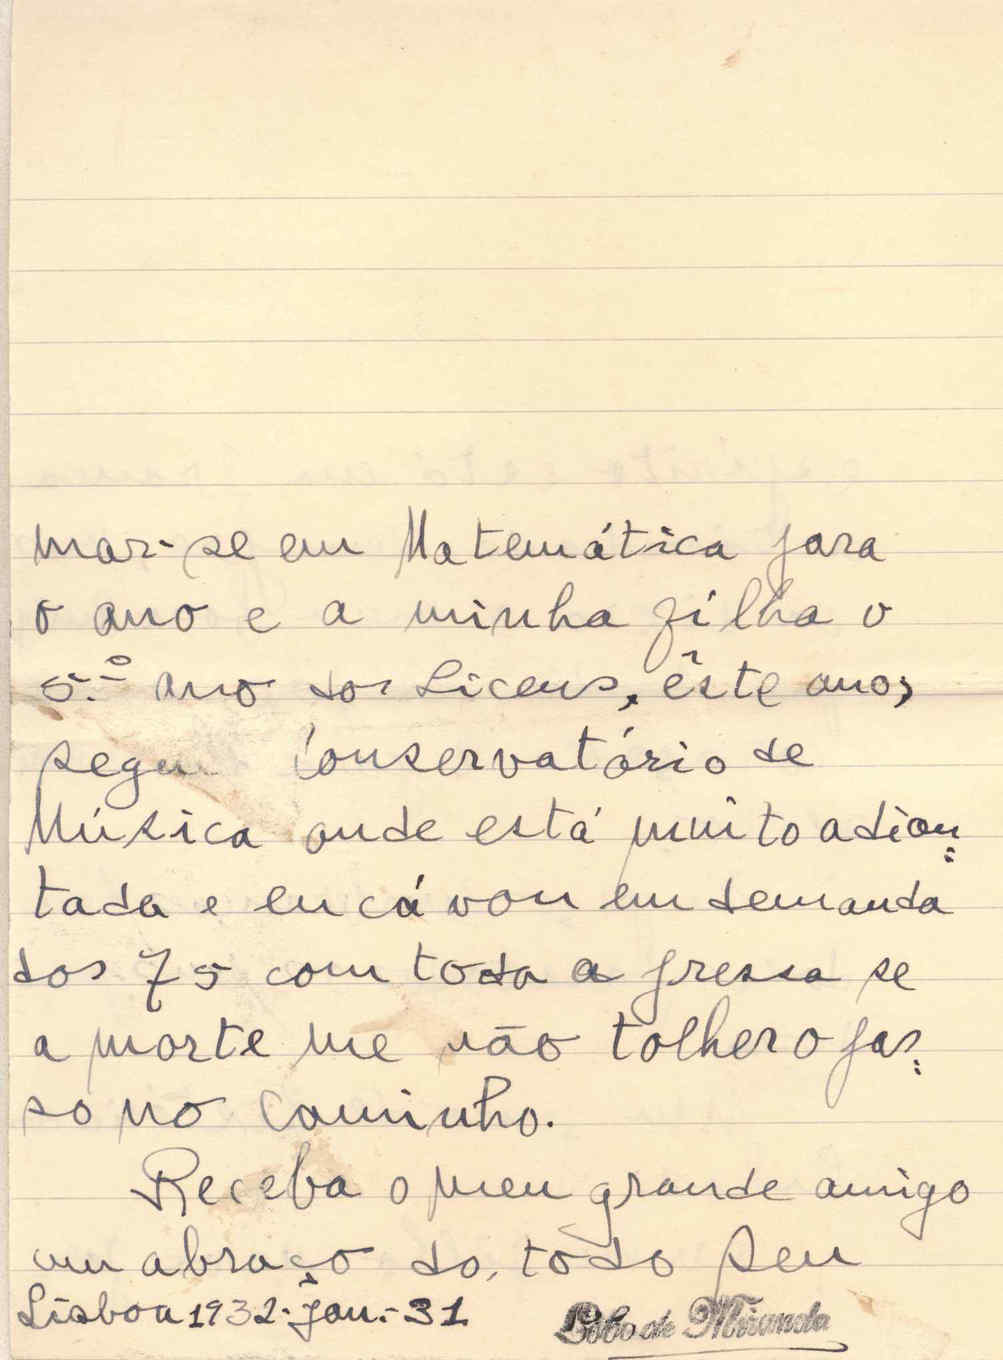 mar-se em Matemática para
o ano e a minha filha o
5.º ano dos Liceus, êste ano;
segu Conservatório de
Música onde está muito adian:
tada e eu cá vou em demanda
dos 75 com toda a pressa se
a morte me não tolher o pas:
so no Caminho.
Receba o meu grande amigo
um abraço do, todo seu
Lisboa 1932-jan.-31
Lobo de Miranda